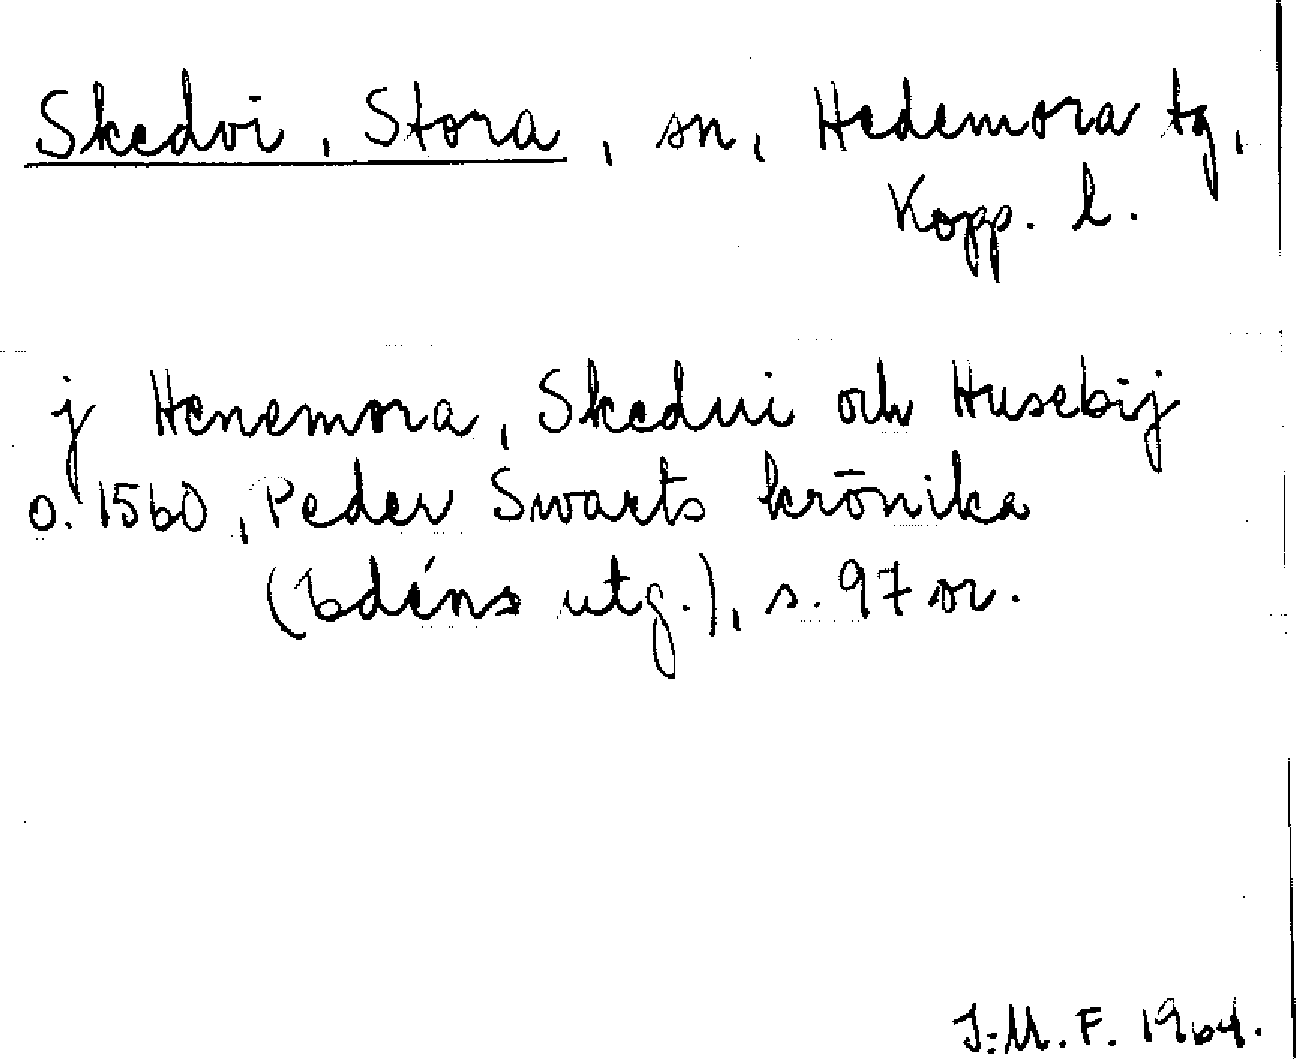 Skedvi, Stora, sn, Hedemora tg,
Kopp. l.
j Henemora, Skedui och Husebij
o. 1560, Peder Swarts krönika
(Edéns utg.), s. 97 or.
I-M. F. 1964.